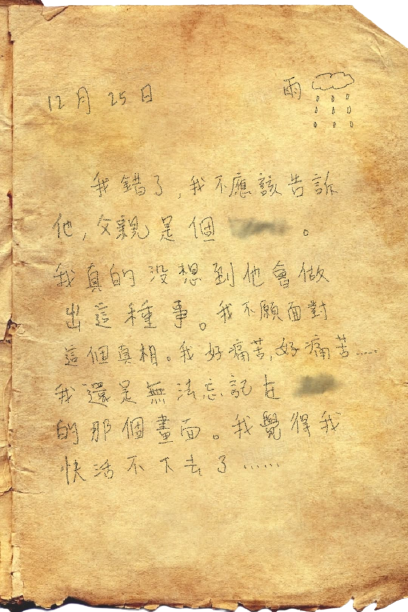 12月25日 雨
我錯了,我不應該告訴
他,父親是個 。
我真的沒想到他會做
出這種事。我不願面對
這個真相。我好痛苦,好痛苦……
我還是無法忘記在
的那個畫面。我覺得我
快活不下去了……